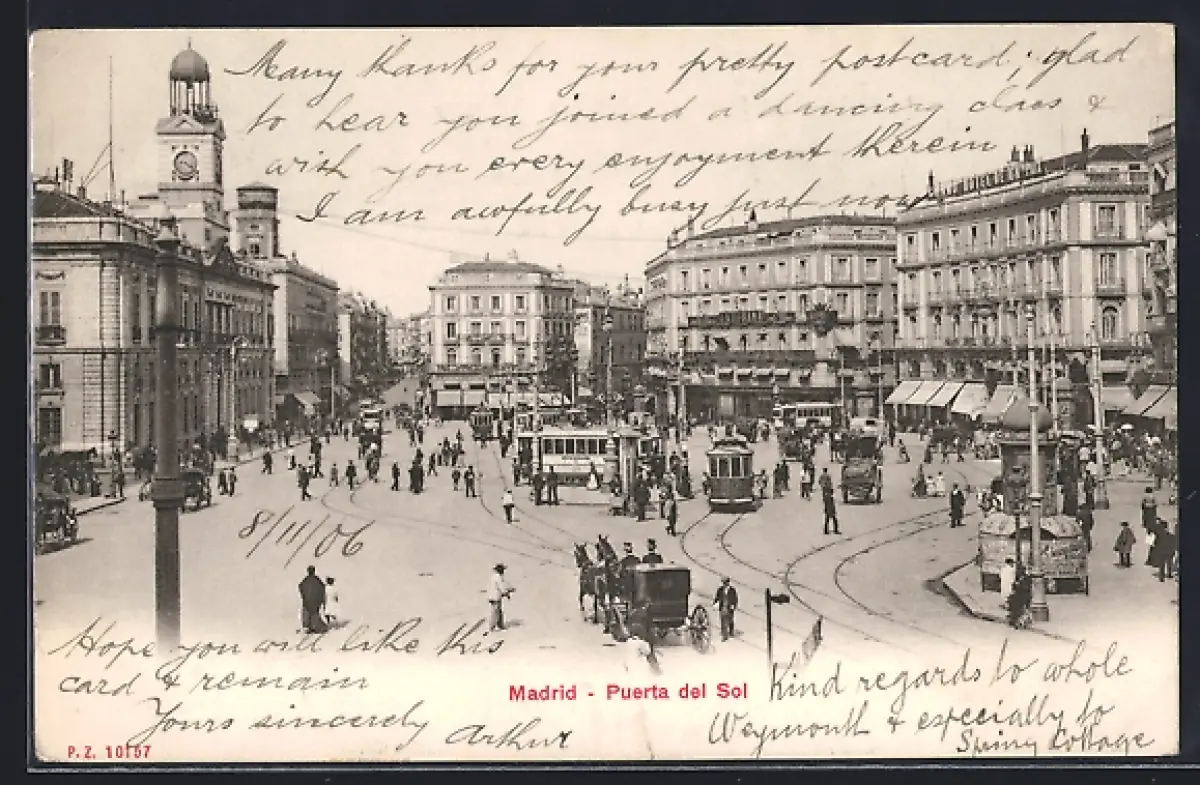 Many thanks for your pretty postcard; glad
to hear you joined a dancing class &
wish you every enjoyment therein
I am awfully busy just now
8/11/06
Hope you will like this
card & remain
Yours sincerely Arthur
Madrid - Puerta del Sol
Kind regards to whole
Weymouth & especially to
Spring Cottage
P.Z. 10157